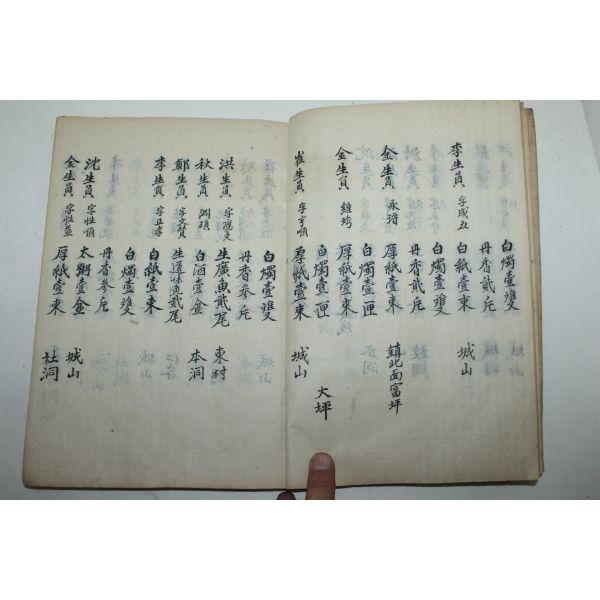 白燭壹雙
李生員 字成五 丹香貳斤
白紙壹束 城山
白燭壹雙
丹香貳斤
金生員 厚紙壹束 鎭北面富坪
白燭壹匣
金生員 厚紙壹束
白燭壹匣 大坪
崔生員 厚紙壹束 城山
白燭壹雙
丹香參斤
洪生員 生廣魚貳尾 東村
秋生員 白酒壹盆 本洞
鄭生員 字文贊 生道味魚貳尾
李生員 白紙壹束
白燭壹雙
丹香參斤
沈生員 太粥壹盆 城山
金生員 厚紙壹束 社洞